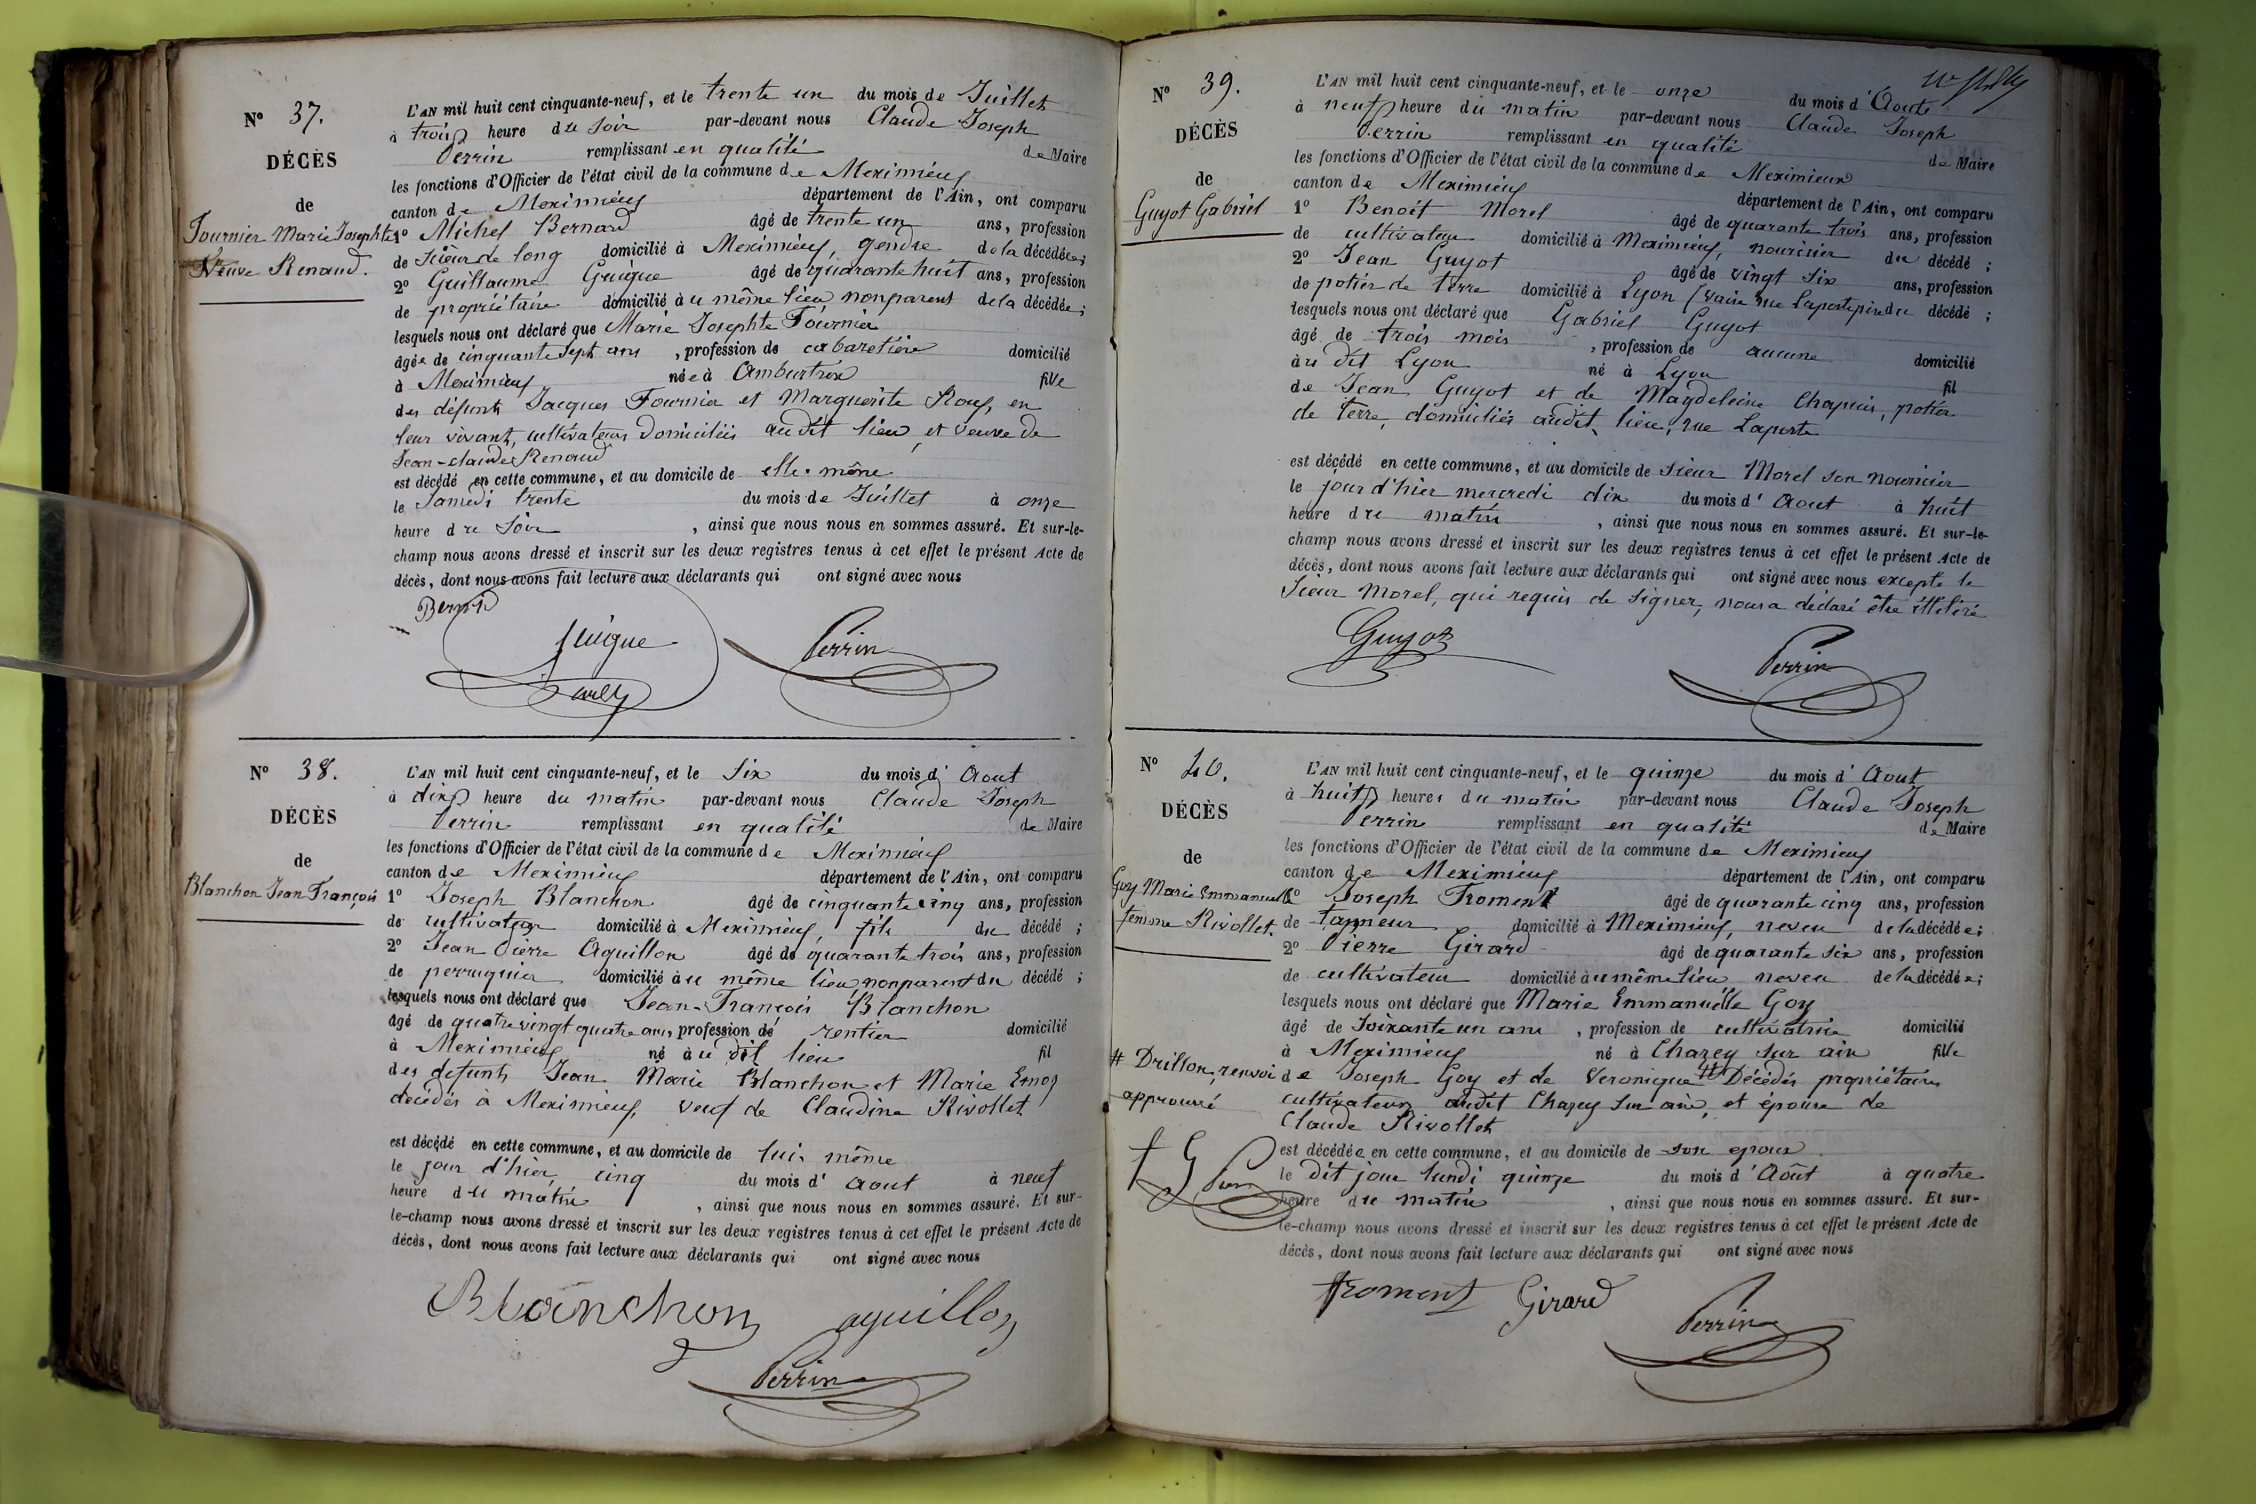 N° 37.
DÉCÈS
de
Fournier Marie Josephte
Veuve Renaud.
L'AN mil huit cent cinquante-neuf, et le trente un du mois de Juillet
à trois heure du soir par-devant nous Claude Joseph
Perrin remplissant en qualité de Maire
les fonctions d'Officier de l'état civil de la commune de Meximieux
canton de Meximieux département de l'Ain, ont comparu
1° Michel Bernard âgé de trente un ans, profession
de scieur de long domicilié à Meximieux, gendre de la décédée;
2° Guillaume Guigue âgé de quarante huit ans, profession
de propriétaire domicilié au même lieu nonparent de la décédée;
lesquels nous ont déclaré que Marie Josephte Fournier
âgée de cinquante sept ans, profession de cabaretière domicilié
à Meximieux née à Ambutrix fille
des défunts Jacques Fournier et Marguerite Roux, en
leur vivant, cultivateurs domiciliés audit lieu, et veuve de
Jean-claude Renaud
est décédé en cette commune, et au domicile de elle-même
le Samedi trente du mois de Juillet à onze
heure du soir, ainsi que nous nous en sommes assuré. Et sur-le-
champ nous avons dressé et inscrit sur les deux registres tenus à cet effet le présent Acte de
décès, dont nous avons fait lecture aux déclarants qui ont signé avec nous
Guigue Perrin
N° 38.
DÉCÈS
de
Blanchon Jean François
L'AN mil huit cent cinquante-neuf, et le six du mois d'Aout
à dix heure du matin par-devant nous Claude Joseph
Perrin remplissant en qualité de Maire
les fonctions d'Officier de l'état civil de la commune de Meximieux
canton de Meximieux département de l'Ain, ont comparu
1° Joseph Blanchon âgé de cinquante cinq ans, profession
de cultivateur domicilié à Meximieux, fils du décédé;
2° Jean Pierre Aguillon âgé de quarante trois ans, profession
de perruquier domicilié au même lieu nonparent du décédé;
lesquels nous ont déclaré que Jean-François Blanchon
âgé de quatre vingt quatre ans, profession de rentier domicilié
à Meximieux né au dit lieu fil
des defunts Jean Marie Blanchon et Marie
décédés à Meximieux, veuf de Claudine Rivollet
est décédé en cette commune, et au domicile de lui même
le jour d'hier, cinq du mois d'aout à neuf
heure du matin, ainsi que nous nous en sommes assuré. Et sur-
le-champ nous avons dressé et inscrit sur les deux registres tenus à cet effet le présent Acte de
décès, dont nous avons fait lecture aux déclarants qui ont signé avec nous
Blanchon aguillon
Perrin
N° 39.
DÉCÈS
de
Guyot Gabriel
L'AN mil huit cent cinquante-neuf, et le onze du mois d'Aout
à neuf heure du matin par-devant nous Claude Joseph
Perrin remplissant en qualité de Maire
les fonctions d'Officier de l'état civil de la commune de Meximieux
canton de Meximieux département de l'Ain, ont comparu
1° Benoit Morel âgé de quarante trois ans, profession
de cultivateur domicilié à Meximieux, nouricier du décédé;
2° Jean Guyot âgé de vingt six ans, profession
de potier de terre domicilié à Lyon rue Laporte père du décédé;
lesquels nous ont déclaré que Gabriel Guyot
âgé de trois mois, profession de aucune domicilié
au dit Lyon né à Lyon fil
de Jean Guyot et de Magdeleine Chapuis, potier
de terre, domiciliés audit lieu, rue Laporte
est décédé en cette commune, et au domicile de sieur Morel son nouricier
le jour d'hier mercredi dix du mois d'Aout à huit
heure du matin, ainsi que nous nous en sommes assuré. Et sur-le-
champ nous avons dressé et inscrit sur les deux registres tenus à cet effet le présent Acte de
décès, dont nous avons fait lecture aux déclarants qui ont signé avec nous excepté le
Sieur Morel, qui requis de signer, nous a déclaré être illétiré
Guyot Perrin
N° 40.
DÉCÈS
de
Goy Marie Emmanuelle
femme Rivollet.
# Drillon, renvoi
approuvé
L'AN mil huit cent cinquante-neuf, et le quinze du mois d'Aout
à huit heures du matin par-devant nous Claude Joseph
Perrin remplissant en qualité de Maire
les fonctions d'Officier de l'état civil de la commune de Meximieux
canton de Meximieux département de l'Ain, ont comparu
1° Joseph Froment âgé de quarante cinq ans, profession
de tanneur domicilié à Meximieux, neveu de la décédée;
2° Pierre Girard âgé de quarante six ans, profession
de cultivateur domicilié au même lieu neveu de la décédée;
lesquels nous ont déclaré que Marie Emmanuelle Goy
âgé de soixante un ans, profession de cultivatrice domicilié
à Meximieux né à Chazey sur ain fille
de Joseph Goy et de Veronique # Décédés propriétaires
cultivateurs audit Chazey sur ain, et épouse de
Claude Rivollet
est décédée en cette commune, et au domicile de son epoux
le dit jour lundi quinze du mois d'Aout à quatre
heure du matin, ainsi que nous nous en sommes assuré. Et sur-
le-champ nous avons dressé et inscrit sur les deux registres tenus à cet effet le présent Acte de
décès, dont nous avons fait lecture aux déclarants qui ont signé avec nous
froment Girard
Perrin